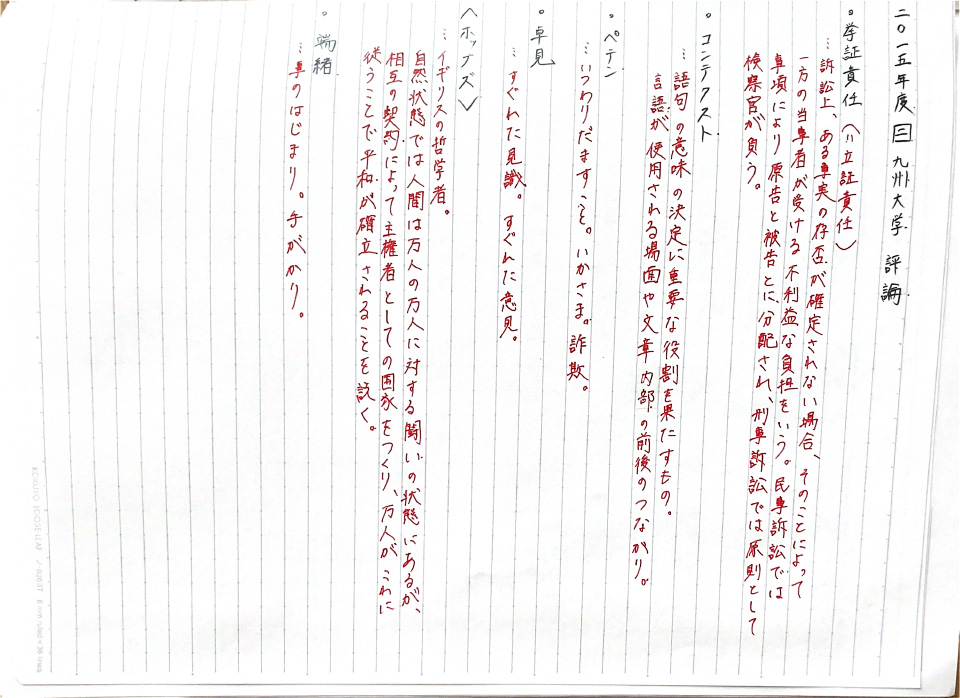 二〇一五年度 三 九州大学 評論
。挙証責任(=立証責任)
…訴訟上、ある事実の存否が確定されない場合、そのことによって
一方の当事者が受ける不利益な負担をいう。民事訴訟では
事項により原告と被告とに分配され、刑事訴訟では原則として
検察官が負う。
。コンテクスト
…語句の意味の決定に重要な役割を果たすもの。
言語が使用される場面や文章内部の前後のつながり。
。ペテン
…いつわりだますこと。いかさま。詐欺。
。卓見
…すぐれた見識。すぐれた意見。
〈ホッブズ〉
…イギリスの哲学者。
自然状態では人間は万人の万人に対する闘いの状態にあるが、
相互の契約によって主権者としての国家をつくり、万人がこれに
従うことで平和が確立されることを説く。
。端緒
…事のはじまり。手がかり。